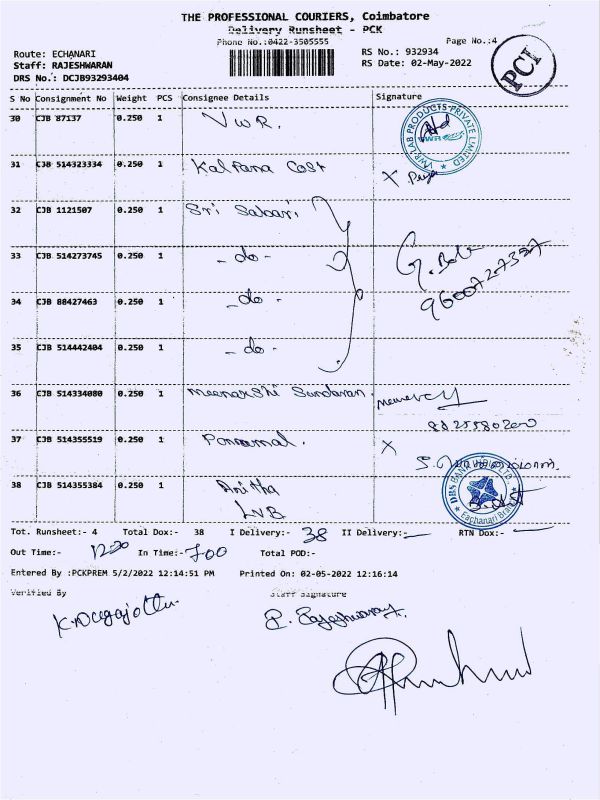 THE PROFESSIONAL COURIERS, Coimbatore
Delivery Runsheet - PCK
Phone No.:0422-3505555
Page No.:4
Route: ECHANARI
RS No.: 932934
Staff: RAJESHWARAN
RS Date: 02-May-2022
DRS No.: DCJB93293404
PCI
S No Consignment No Weight PCS Consignee Details Signature
30 CJB 87137 0.250 1 VWR.
VWR LAB PRODUCTS PRIVATE LIMITED
31 CJB 514323334 0.250 1 Kalpana Cost X Priya
32 CJB 1121507 0.250 1 Sri Sabari
33 CJB 514273745 0.250 1 - do - G. Bala
9600727327
34 CJB 88427463 0.250 1 - do -
35 CJB 514442404 0.250 1 - do -
36 CJB 514334080 0.250 1 meenakshi Sundaram
8825580200
37 CJB 514355519 0.250 1 Ponnamal. X
38 CJB 514355384 0.250 1 Anitha
LVB
DBS BANK INDIA LTD.
Eachanari Branch
Tot. Runsheet:- 4 Total Dox:- 38 I Delivery:- 38 II Delivery:- RTN Dox:-
Out Time:- 12.30 In Time:- 7.00 Total POD:-
Entered By :PCKPREM 5/2/2022 12:14:51 PM Printed On: 02-05-2022 12:16:14
Verified By Staff Signature
P. Rajeshwaran